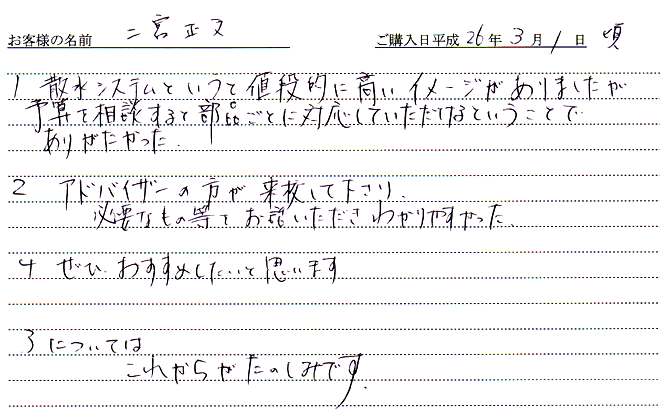 お客様の名前 二宮正又 ご購入日平成26年3月1日頃
1 散水システムというと値段的に高いイメージがありましたが
予算を相談すると部品ごとに対応していただけるということで
ありがたかった.
2 アドバイザーの方が来校して下さり、
必要なもの等をお話いただきわかりやすかった
4 ぜひ、おすすめしたいと思います
3 については
これからがたのしみです.